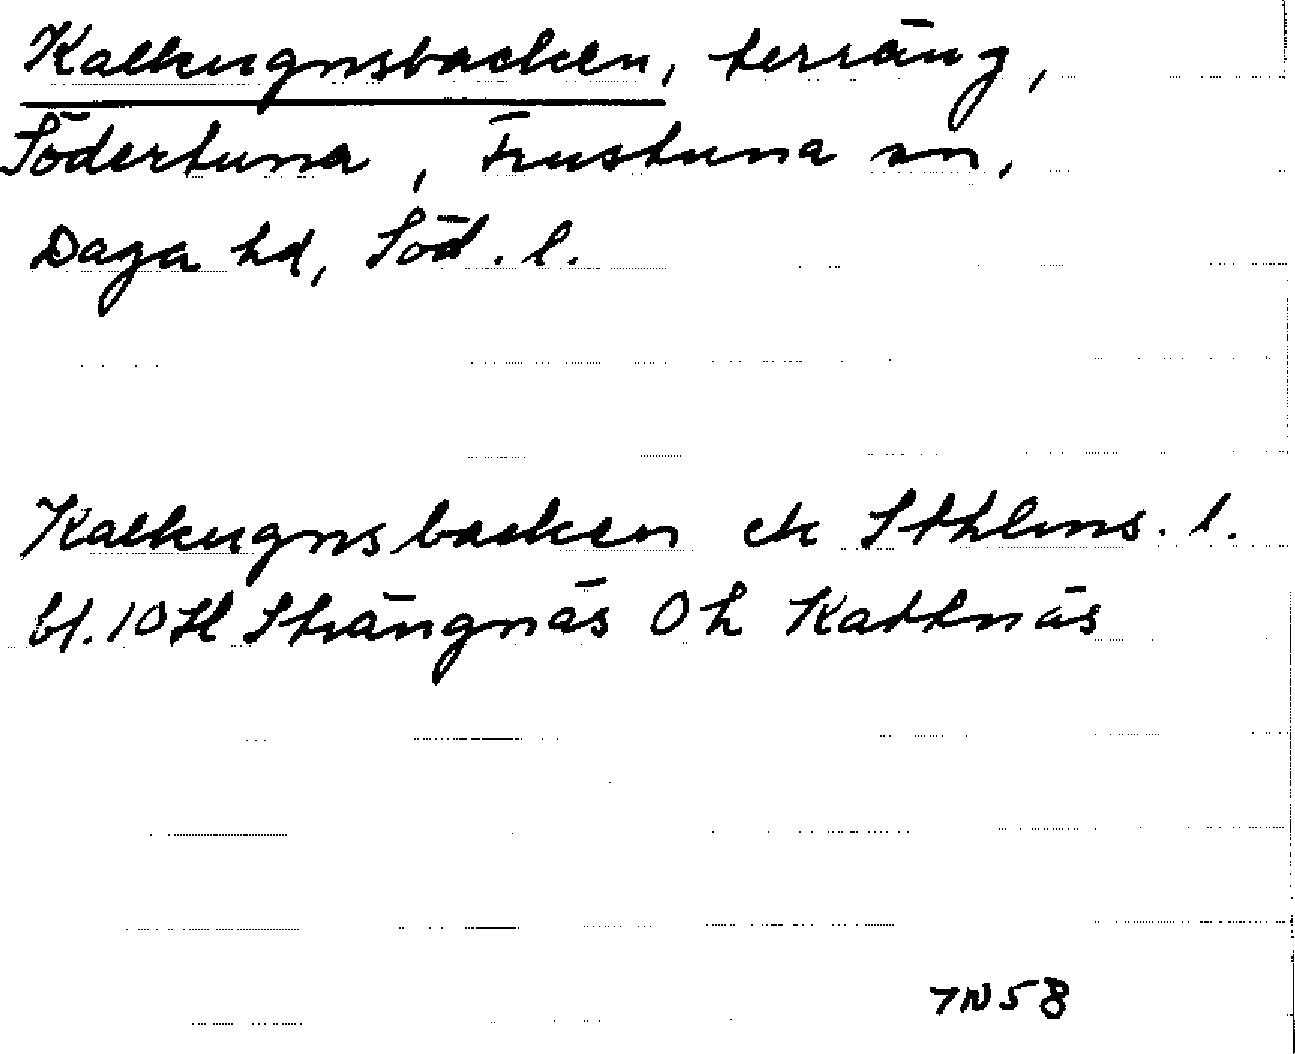 Kalkugnsbacken, terräng,
Södertuna, Frustuna sn,
Daga hd, Söd. l.
Kalkugnsbacken ek Sthlms. l.
bl. 10H Strängnäs 0h Kattnäs
TN58